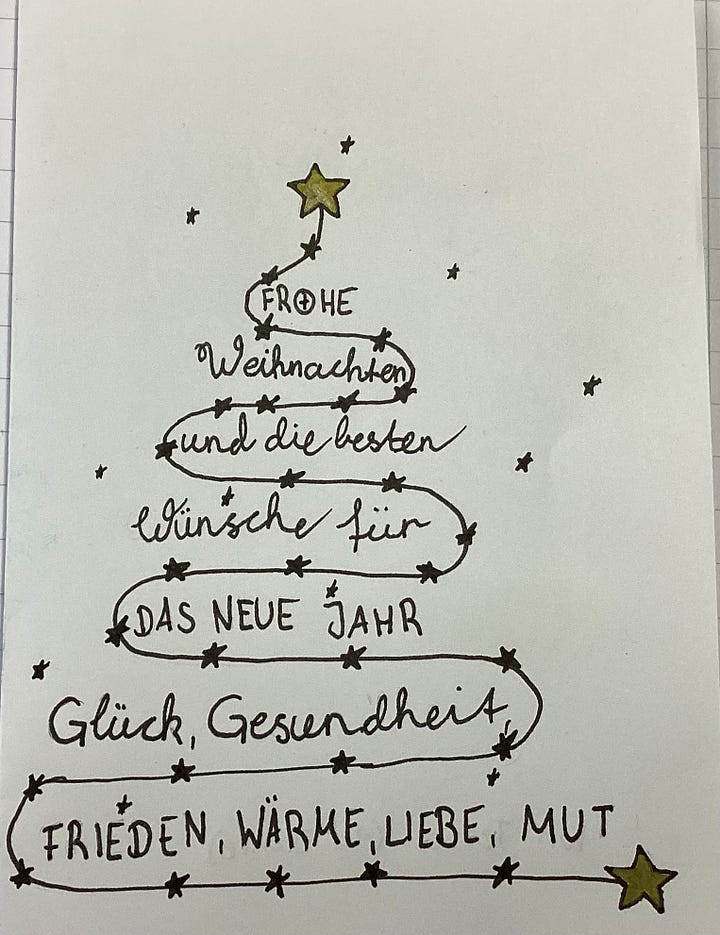 FROHE
Weihnachten
und die besten
Wünsche für
DAS NEUE JAHR
Glück, Gesundheit,
FRIEDEN, WÄRME, LIEBE, MUT